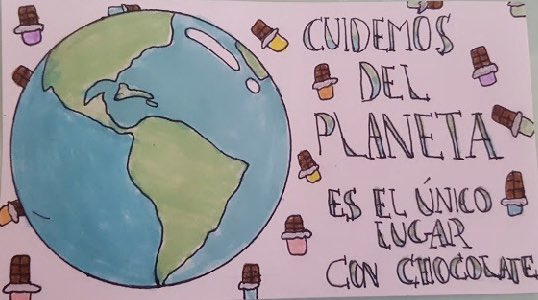 CUIDEMOS
DEL
PLANETA
ES EL ÚNICO
LUGAR
CON CHOCOLATE